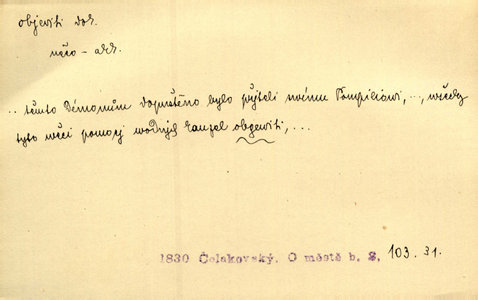 objeviti dok.
něco – akk.
.. těmto Démonům dopuštěno bylo přjteli mému Pompiliowi, .., wšecky
tyto wěci pomocj wodných kauzel obgewiti, ...
1830 Čelakovský. O městě b. 2, 103. 31.